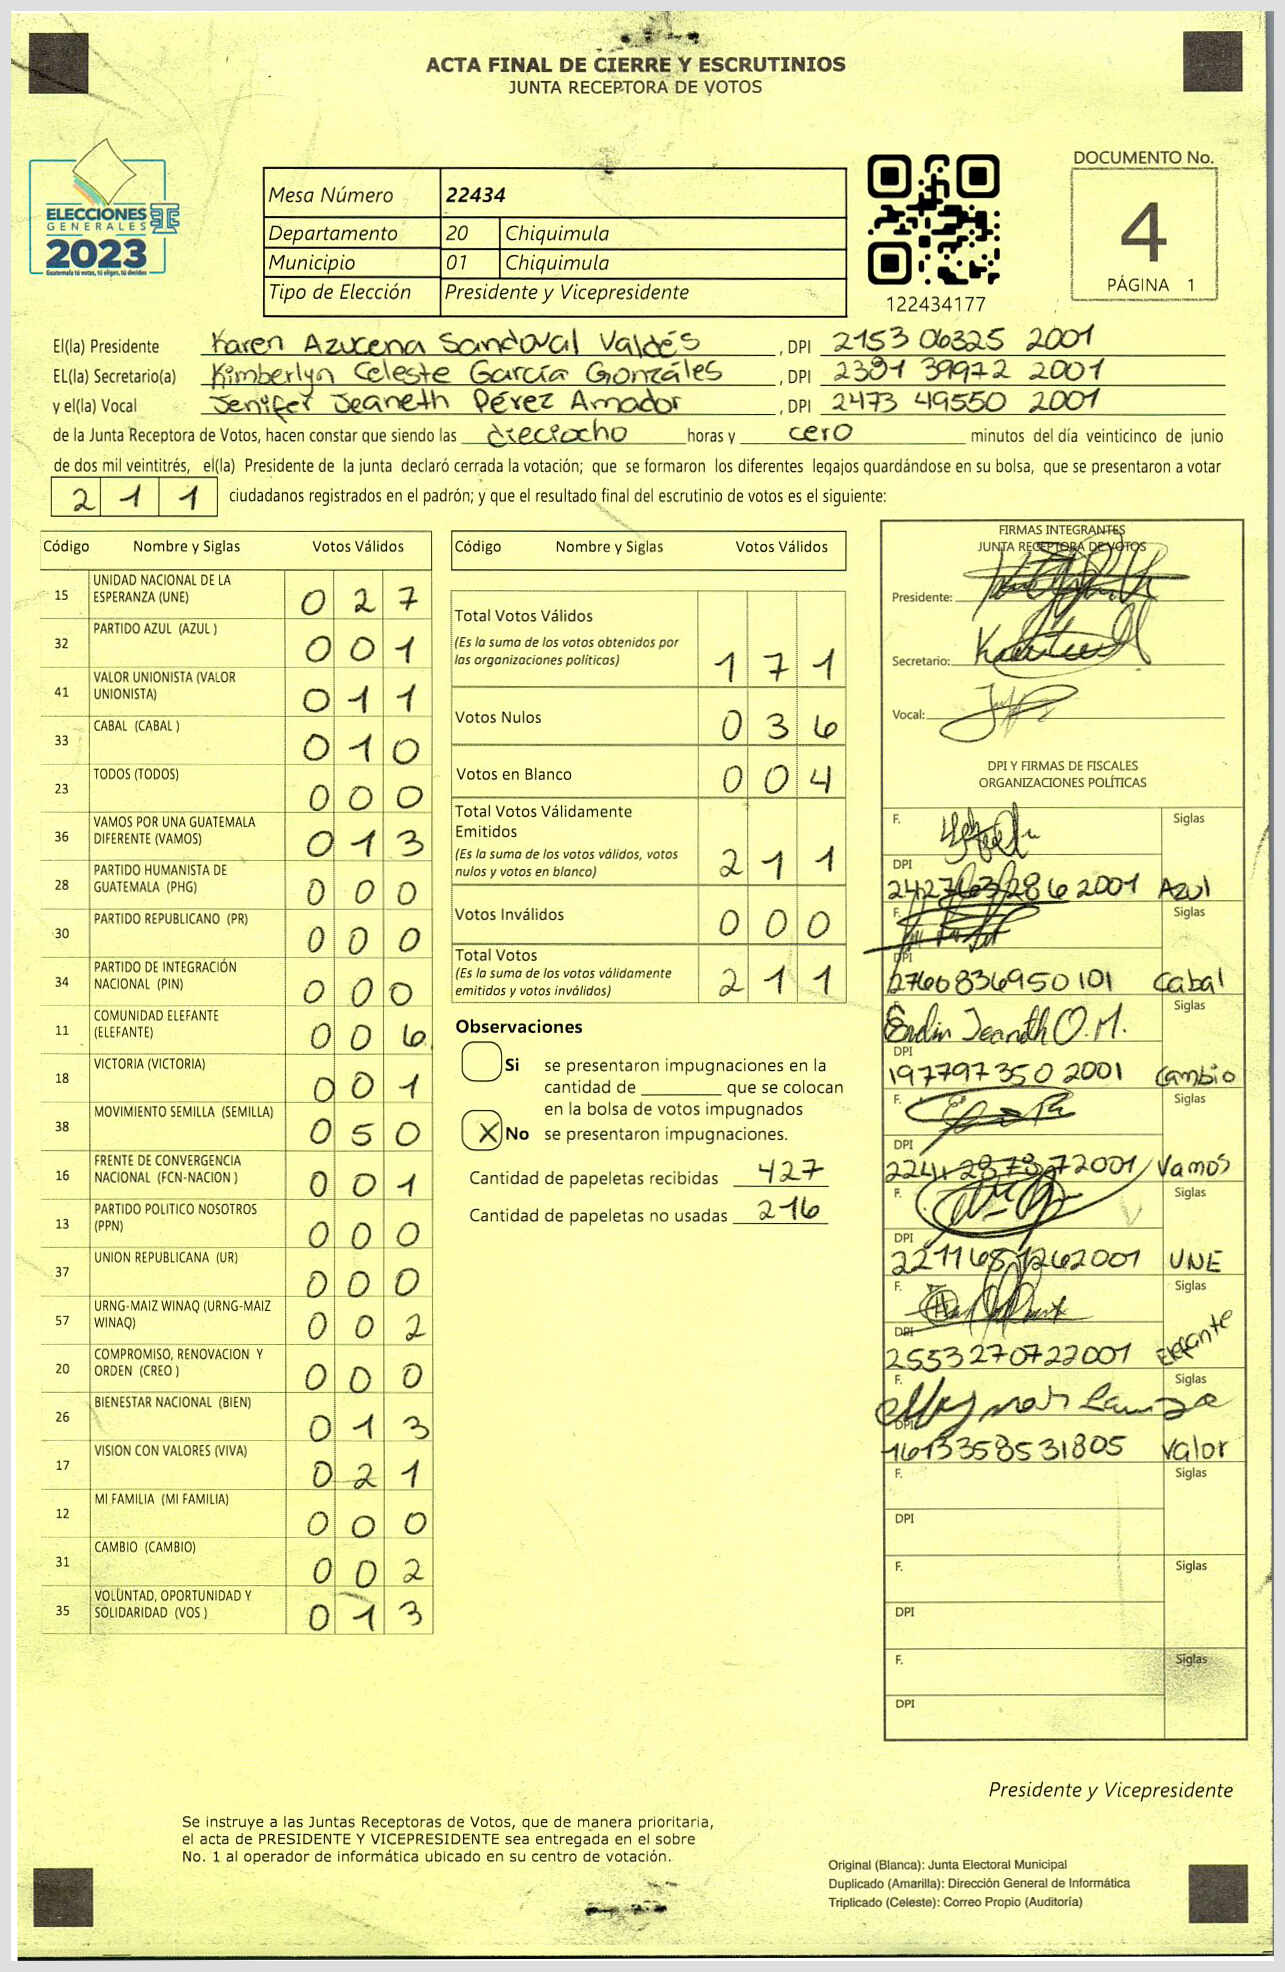 ACTA FINAL DE CIERRE Y ESCRUTINIOS
JUNTA RECEPTORA DE VOTOS
ELECCIONES
GENERALES
2023
Guatemala tú votas, tú eliges, tú decides
Mesa Número 22434
Departamento 20 Chiquimula
Municipio 01 Chiquimula
Tipo de Elección Presidente y Vicepresidente
122434177
DOCUMENTO No.
4
PÁGINA 1
El(la) Presidente Karen Azucena Sandoval Valdés, DPI 2153 06325 2001
EL(la) Secretario(a) Kimberlyn Celeste García Gonzáles, DPI 2381 39972 2001
y el(la) Vocal Jenifer Jeaneth Pérez Amador, DPI 2473 49550 2001
de la Junta Receptora de Votos, hacen constar que siendo las dieciocho horas y cero minutos del día veinticinco de junio
de dos mil veintitrés, el(la) Presidente de la junta declaró cerrada la votación; que se formaron los diferentes legajos quardándose en su bolsa, que se presentaron a votar
2 1 1 ciudadanos registrados en el padrón; y que el resultado final del escrutinio de votos es el siguiente:
Código Nombre y Siglas Votos Válidos
15 UNIDAD NACIONAL DE LA
ESPERANZA (UNE) 0 2 7
32 PARTIDO AZUL (AZUL ) 0 0 1
41 VALOR UNIONISTA (VALOR
UNIONISTA) 0 1 1
33 CABAL (CABAL ) 0 1 0
23 TODOS (TODOS) 0 0 0
36 VAMOS POR UNA GUATEMALA
DIFERENTE (VAMOS) 0 1 3
28 PARTIDO HUMANISTA DE
GUATEMALA (PHG) 0 0 0
30 PARTIDO REPUBLICANO (PR) 0 0 0
34 PARTIDO DE INTEGRACIÓN
NACIONAL (PIN) 0 0 0
11 COMUNIDAD ELEFANTE
(ELEFANTE) 0 0 6
18 VICTORIA (VICTORIA) 0 0 1
38 MOVIMIENTO SEMILLA (SEMILLA) 0 5 0
16 FRENTE DE CONVERGENCIA
NACIONAL (FCN-NACION ) 0 0 1
13 PARTIDO POLITICO NOSOTROS
(PPN) 0 0 0
37 UNION REPUBLICANA (UR) 0 0 0
57 URNG-MAIZ WINAQ (URNG-MAIZ
WINAQ) 0 0 2
20 COMPROMISO, RENOVACION Y
ORDEN (CREO ) 0 0 0
26 BIENESTAR NACIONAL (BIEN) 0 1 3
17 VISION CON VALORES (VIVA) 0 2 1
12 MI FAMILIA (MI FAMILIA) 0 0 0
31 CAMBIO (CAMBIO) 0 0 2
35 VOLUNTAD, OPORTUNIDAD Y
SOLIDARIDAD (VOS ) 0 1 3
Código Nombre y Siglas Votos Válidos
Total Votos Válidos
(Es la suma de los votos obtenidos por
las organizaciones políticas) 1 7 1
Votos Nulos 0 3 6
Votos en Blanco 0 0 4
Total Votos Válidamente
Emitidos
(Es la suma de los votos válidos, votos
nulos y votos en blanco) 2 1 1
Votos Inválidos 0 0 0
Total Votos
(Es la suma de los votos válidamente
emitidos y votos inválidos) 2 1 1
Observaciones
Si se presentaron impugnaciones en la
cantidad de ________ que se colocan
en la bolsa de votos impugnados
X No se presentaron impugnaciones.
Cantidad de papeletas recibidas 427
Cantidad de papeletas no usadas 216
FIRMAS INTEGRANTES
JUNTA RECEPTORA DE VOTOS
Presidente:
Secretario:
Vocal:
DPI Y FIRMAS DE FISCALES
ORGANIZACIONES POLÍTICAS
F. Siglas
DPI
Azul
F. Siglas
DPI
2760836950101 Cabal
F. Siglas
DPI
197797350 2001 Cambio
F. Siglas
DPI
Vamos
F. Siglas
DPI
UNE
F. Siglas
DPI
2553270722001 Elefante
F. Siglas
DPI
1613358531805 Valor
F. Siglas
DPI
F. Siglas
DPI
F. Siglas
DPI
Presidente y Vicepresidente
Se instruye a las Juntas Receptoras de Votos, que de manera prioritaria,
el acta de PRESIDENTE Y VICEPRESIDENTE sea entregada en el sobre
No. 1 al operador de informática ubicado en su centro de votación.
Original (Blanca): Junta Electoral Municipal
Duplicado (Amarilla): Dirección General de Informática
Triplicado (Celeste): Correo Propio (Auditoría)